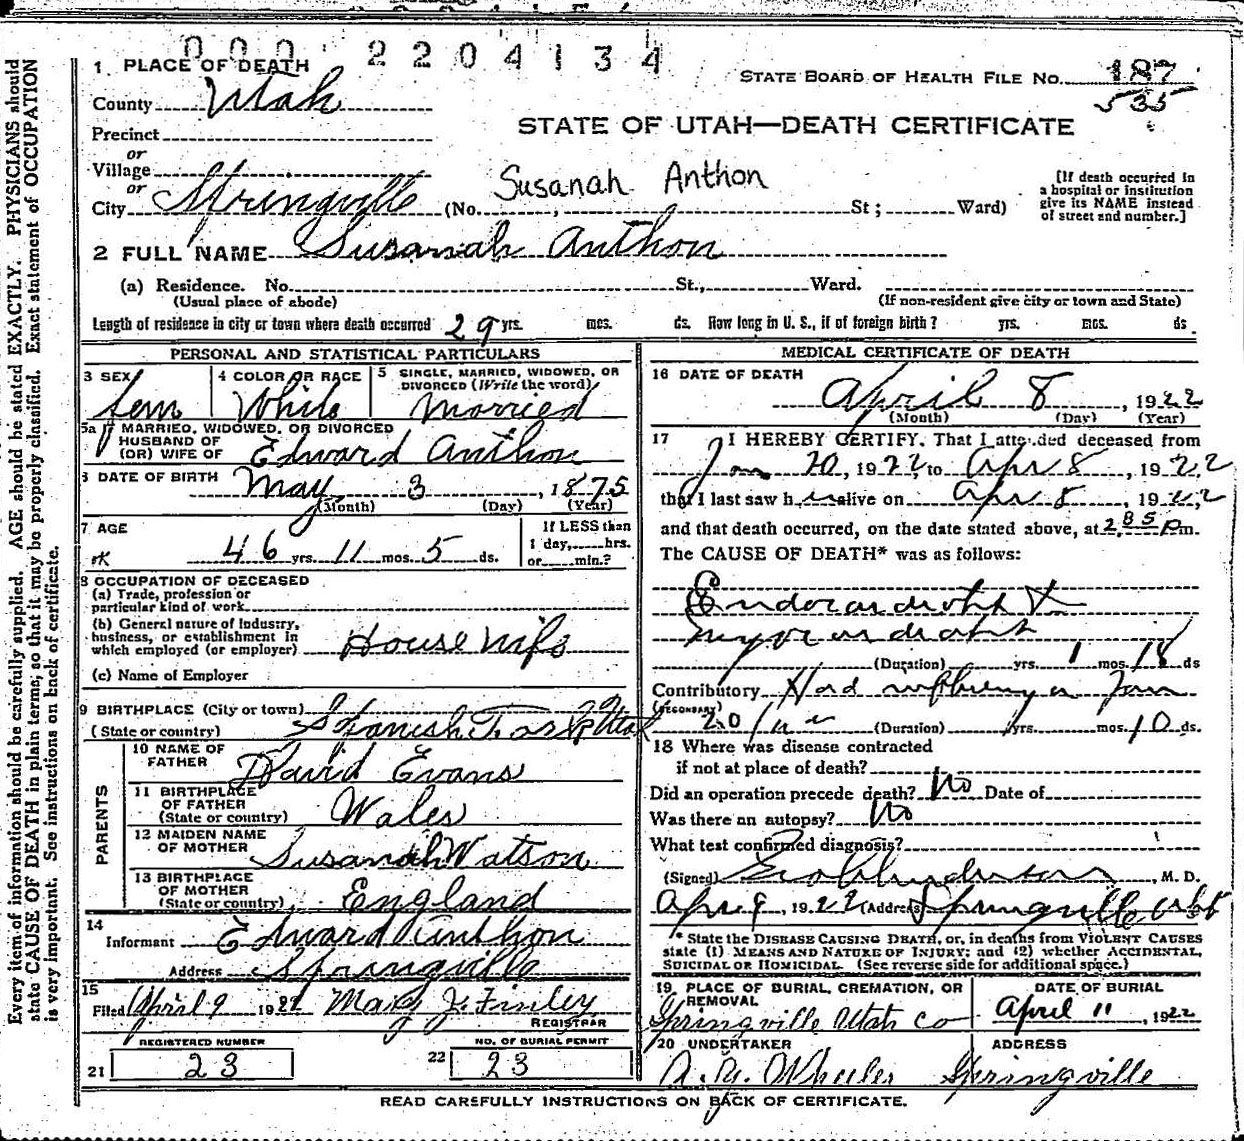 000 2204134
1 PLACE OF DEATH
STATE BOARD OF HEALTH FILE No. 187
535
County Utah
STATE OF UTAH—DEATH CERTIFICATE
Precinct
or
Village
or
City Springville (No. , St ; Ward)
Susanah Anthon
[If death occurred in
a hospital or institution
give its NAME instead
of street and number.]
2 FULL NAME Susanah Anthon
(a) Residence. No. St., Ward.
(Usual place of abode)
(If non-resident give city or town and State)
Length of residence in city or town where death occurred 29 yrs. mos. ds. How long in U. S., if of foreign birth? yrs. mos. ds.
Every item of information should be carefully supplied. AGE should be stated EXACTLY. PHYSICIANS should
state CAUSE OF DEATH in plain terms, so that it may be properly classified. Exact statement of OCCUPATION
is very important. See instructions on back of certificate.
PERSONAL AND STATISTICAL PARTICULARS
3 SEX
Fem
4 COLOR OR RACE
White
5 SINGLE, MARRIED, WIDOWED, OR
DIVORCED (Write the word)
Married
5a If MARRIED, WIDOWED, OR DIVORCED
HUSBAND OF
(OR) WIFE OF Edward Anthon
6 DATE OF BIRTH May 3, 1875
(Month) (Day) (Year)
7 AGE
46 yrs. 11 mos. 5 ds.
If LESS than
1 day, hrs.
or min.?
8 OCCUPATION OF DECEASED
(a) Trade, profession or
particular kind of work
(b) General nature of industry,
business, or establishment in
which employed (or employer) House Wife
(c) Name of Employer
9 BIRTHPLACE (City or town)
(State or country) Spanish Fork Utah
PARENTS
10 NAME OF
FATHER David Evans
11 BIRTHPLACE
OF FATHER
(State or country) Wales
12 MAIDEN NAME
OF MOTHER Susanah Watson
13 BIRTHPLACE
OF MOTHER
(State or country) England
14
Informant Edward Anthon
Address Springville
15
Filed April 9 1922 Mary J. Finley
REGISTRAR
REGISTERED NUMBER
21 23
NO. OF BURIAL PERMIT
22 23
MEDICAL CERTIFICATE OF DEATH
16 DATE OF DEATH
April 8, 1922
(Month) (Day) (Year)
17 I HEREBY CERTIFY, That I attended deceased from
Jan 20, 1922, to Apr 8, 1922
that I last saw her alive on Apr 8, 1922
and that death occurred, on the date stated above, at m.
The CAUSE OF DEATH* was as follows:
(Duration) yrs. 1 mos. 18 ds
Contributory Had Jan
(SECONDARY)
20 (Duration) yrs. mos. 10 ds.
18 Where was disease contracted
if not at place of death?
Did an operation precede death? No Date of
Was there an autopsy? No
What test confirmed diagnosis?
(Signed) , M. D.
Apr 9, 1922 (Address) Springville Utah
* State the DISEASE CAUSING DEATH, or, in deaths from VIOLENT CAUSES
state (1) MEANS AND NATURE OF INJURY; and (2) whether ACCIDENTAL,
SUICIDAL OR HOMICIDAL. (See reverse side for additional space.)
19 PLACE OF BURIAL, CREMATION, OR
REMOVAL
Springville Utah Co
DATE OF BURIAL
April 11, 1922
20 UNDERTAKER
A. Y. Wheeler
ADDRESS
Springville
READ CAREFULLY INSTRUCTIONS ON BACK OF CERTIFICATE.